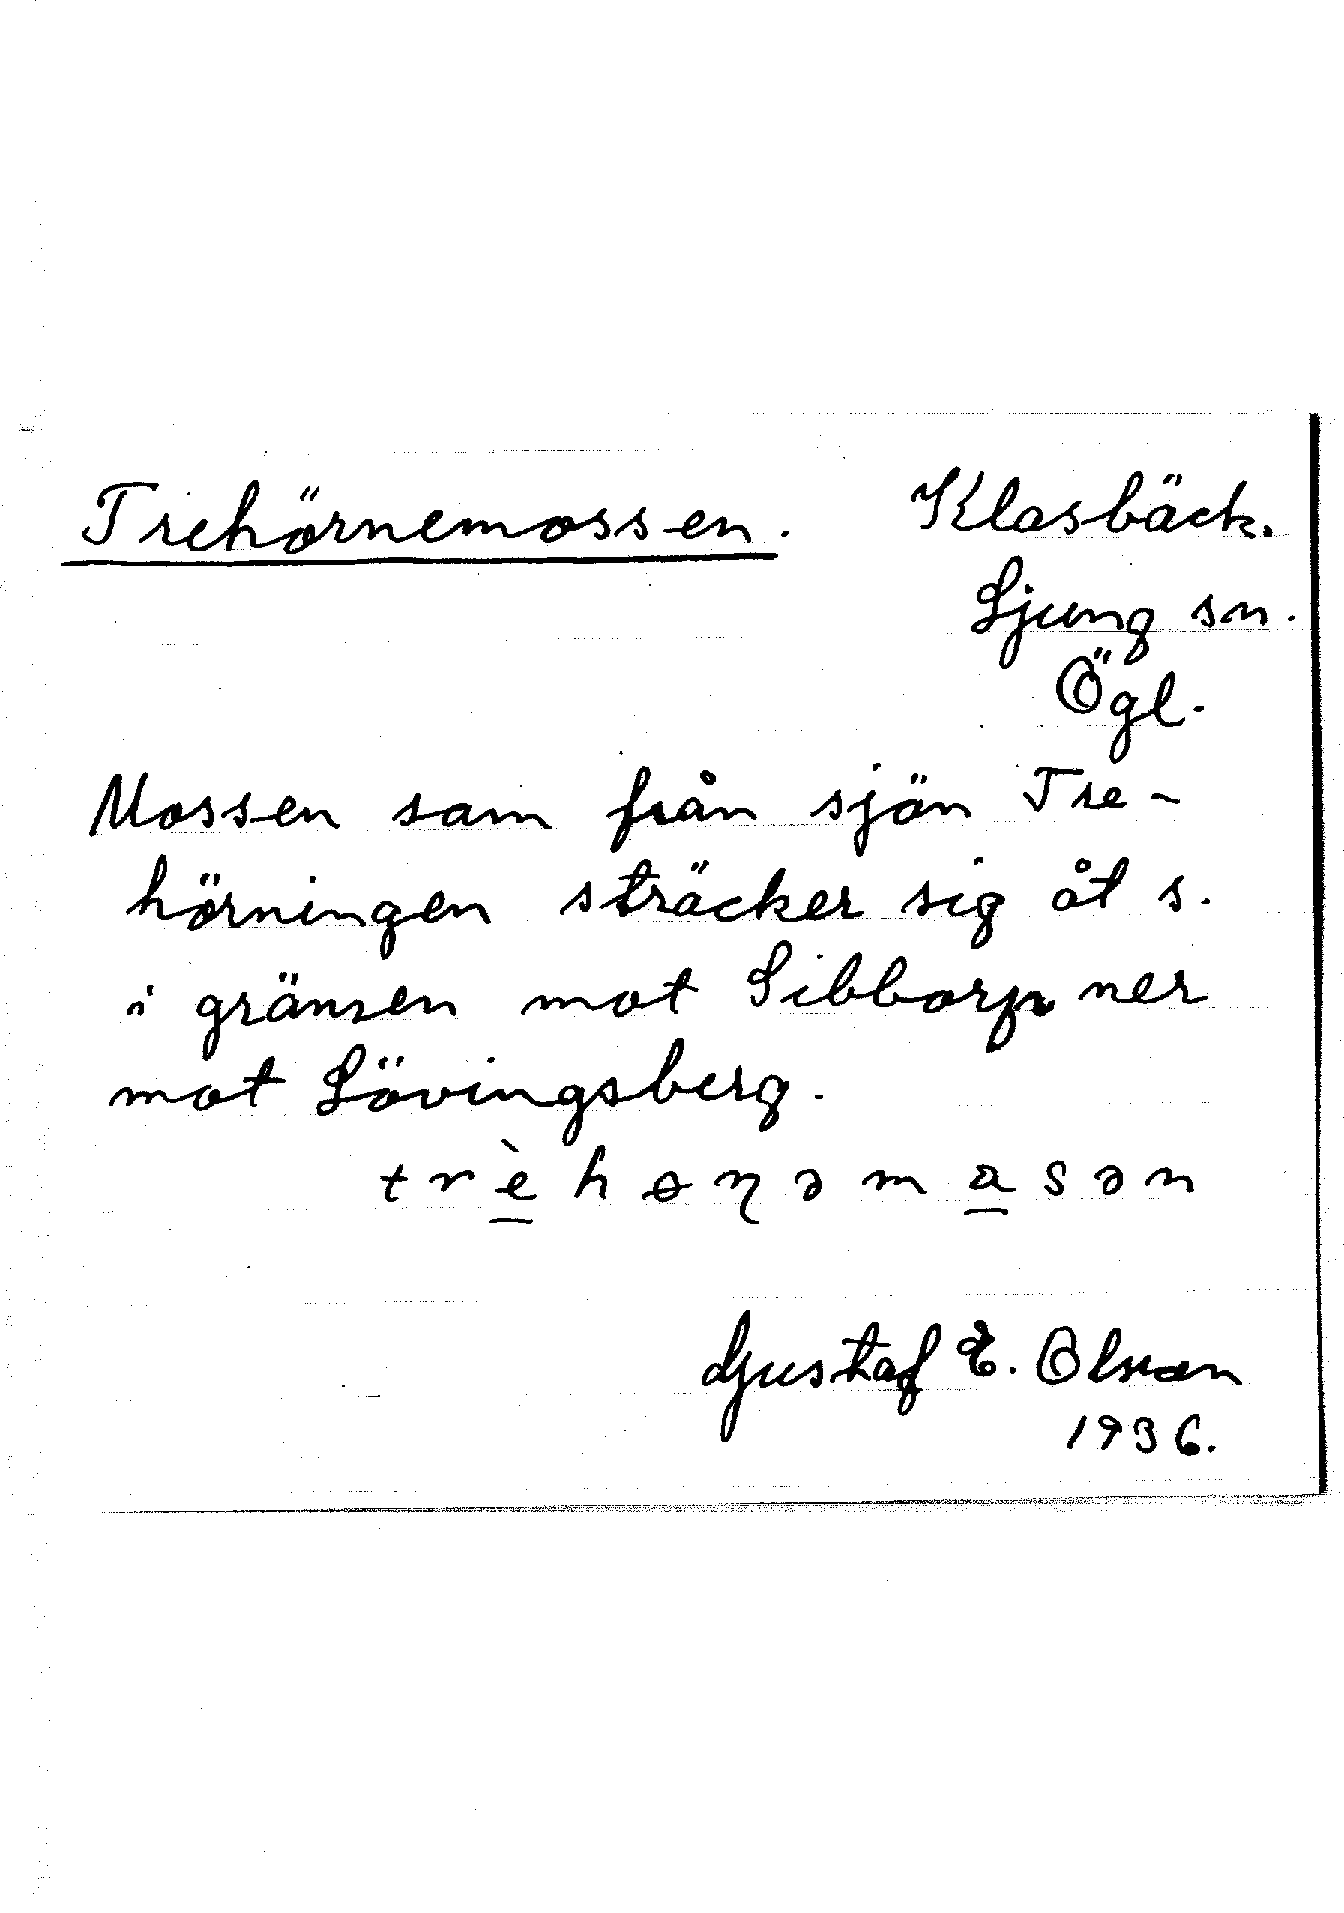 Trehörnemossen. Klasbäck.
Ljung sn.
Ögl.
Mossen som från sjön Tre-
hörningen sträcker sig åt s.
i gränsen mot Sibborp ner
mot Lövingsberg.
trèhɵɳəmasən
Gustaf E. Olsson
1936.